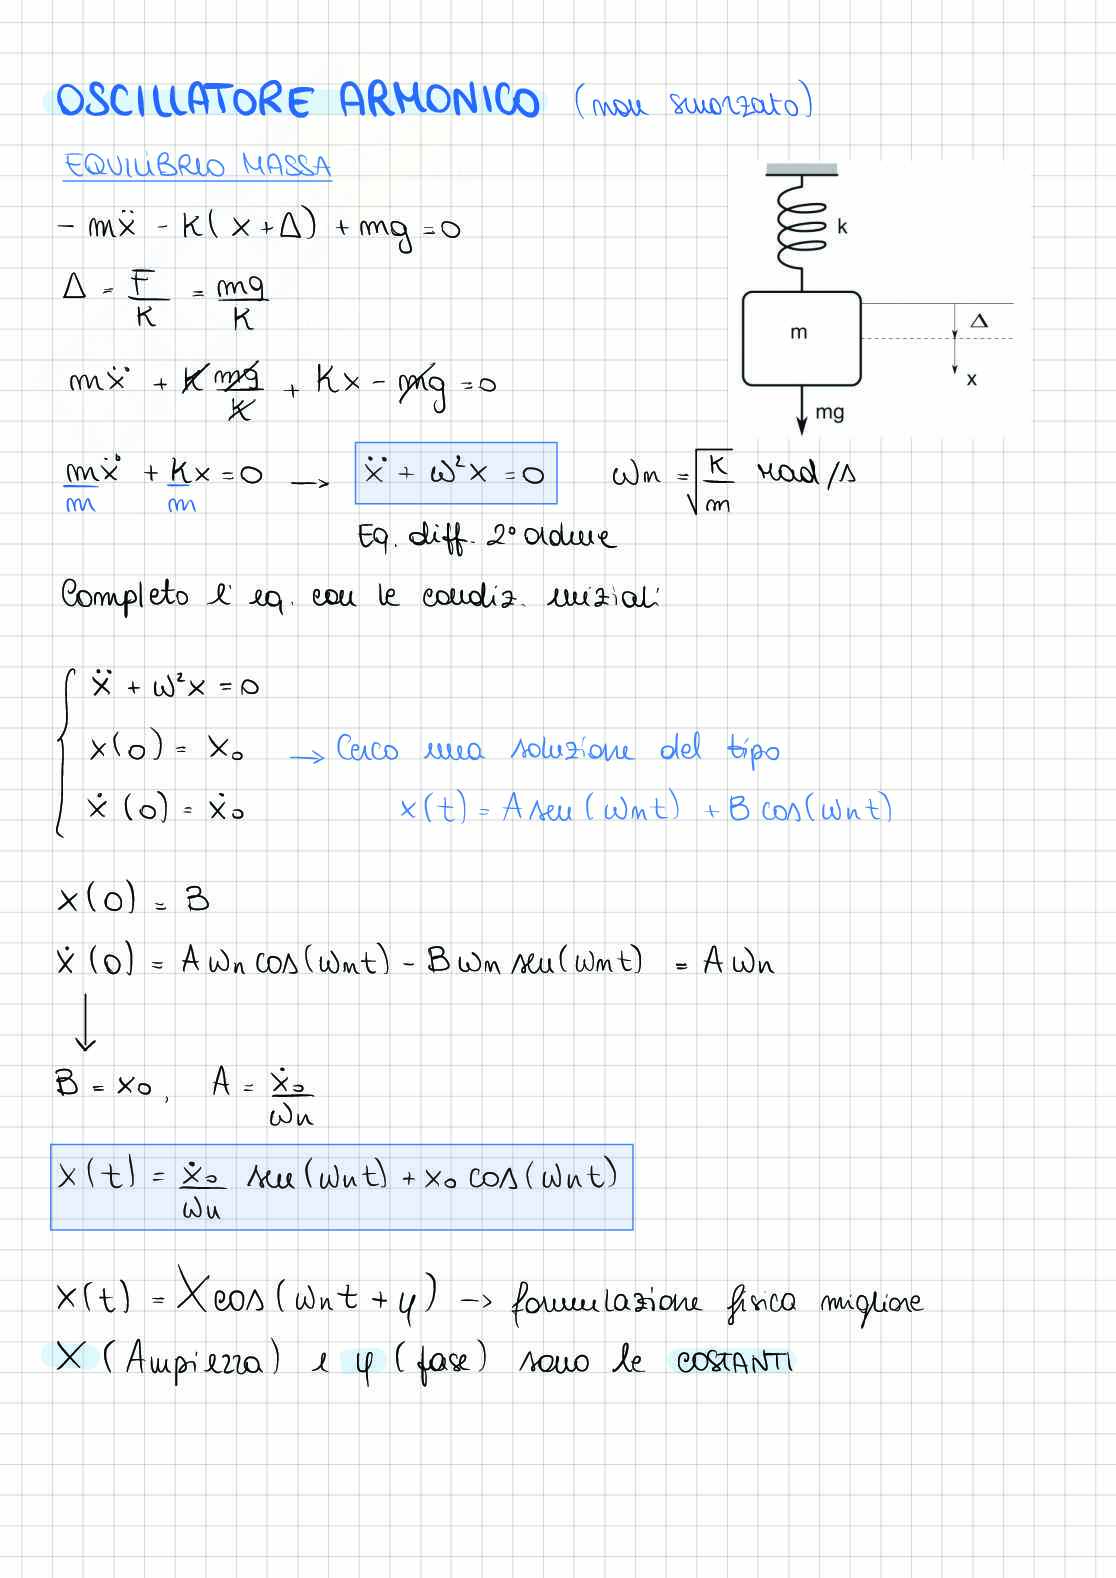 OSCILLATORE ARMONICO (non smorzato)
EQUILIBRIO MASSA
- mẍ - K(x+Δ) + mg = 0
Δ = F/K = mg/K
mẍ + K mg/K + Kx - mg = 0
mẍ/m + Kx/m = 0 → ẍ + ω²x = 0 ωn = √(K/m) rad/s
Eq. diff. 2° ordine
Completo l'eq. con le condiz. iniziali
ẍ + ω²x = 0
x(0) = x₀ → Cerco una soluzione del tipo
ẋ(0) = ẋ₀ x(t) = A sen(ωnt) + B cos(ωnt)
x(0) = B
ẋ(0) = A ωn cos(ωnt) - B ωn sen(ωnt) = A ωn
↓
B = x₀, A = ẋ₀/ωn
x(t) = ẋ₀/ωn sen(ωnt) + x₀ cos(ωnt)
x(t) = X cos(ωnt + φ) → formulazione fisica migliore
X (Ampiezza) e φ (fase) sono le COSTANTI
k
m
Δ
x
mg